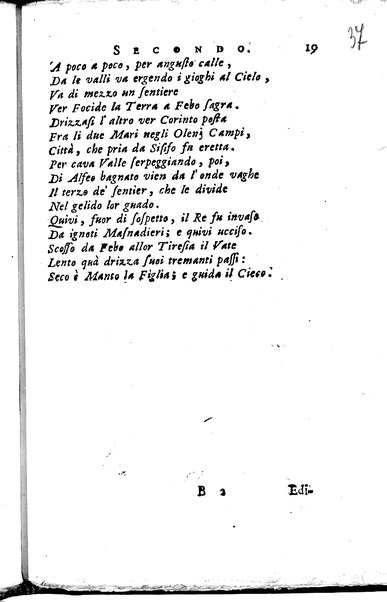 SECONDO. 19
37
'A poco a poco, per anguſto calle,
Da le valli va ergendo i gioghi al Cielo,
Va di mezzo un ſentiere
Ver Focide la Terra a Febo ſagra.
Drizzaſi l'altro ver Corinto poſta
Fra li due Mari negli Olenj Campi,
Città, che pria da Siſifo fu eretta.
Per cava Valle ſerpeggiando, poi,
Di Alfeo bagnato vien da l'onde vaghe
Il terzo de' ſentier, che le divide
Nel gelido lor guado.
Quivi, fuor di ſoſpetto, il Re fu invaſo
Da ignoti Maſnadieri; e quivi ucciſo.
Scoſſo da Febo allor Tireſia il Vate
Lento quà drizza ſuoi tremanti paſſi:
Seco è Manto la Figlia; e guida il Cieco.
B 2 Edi-